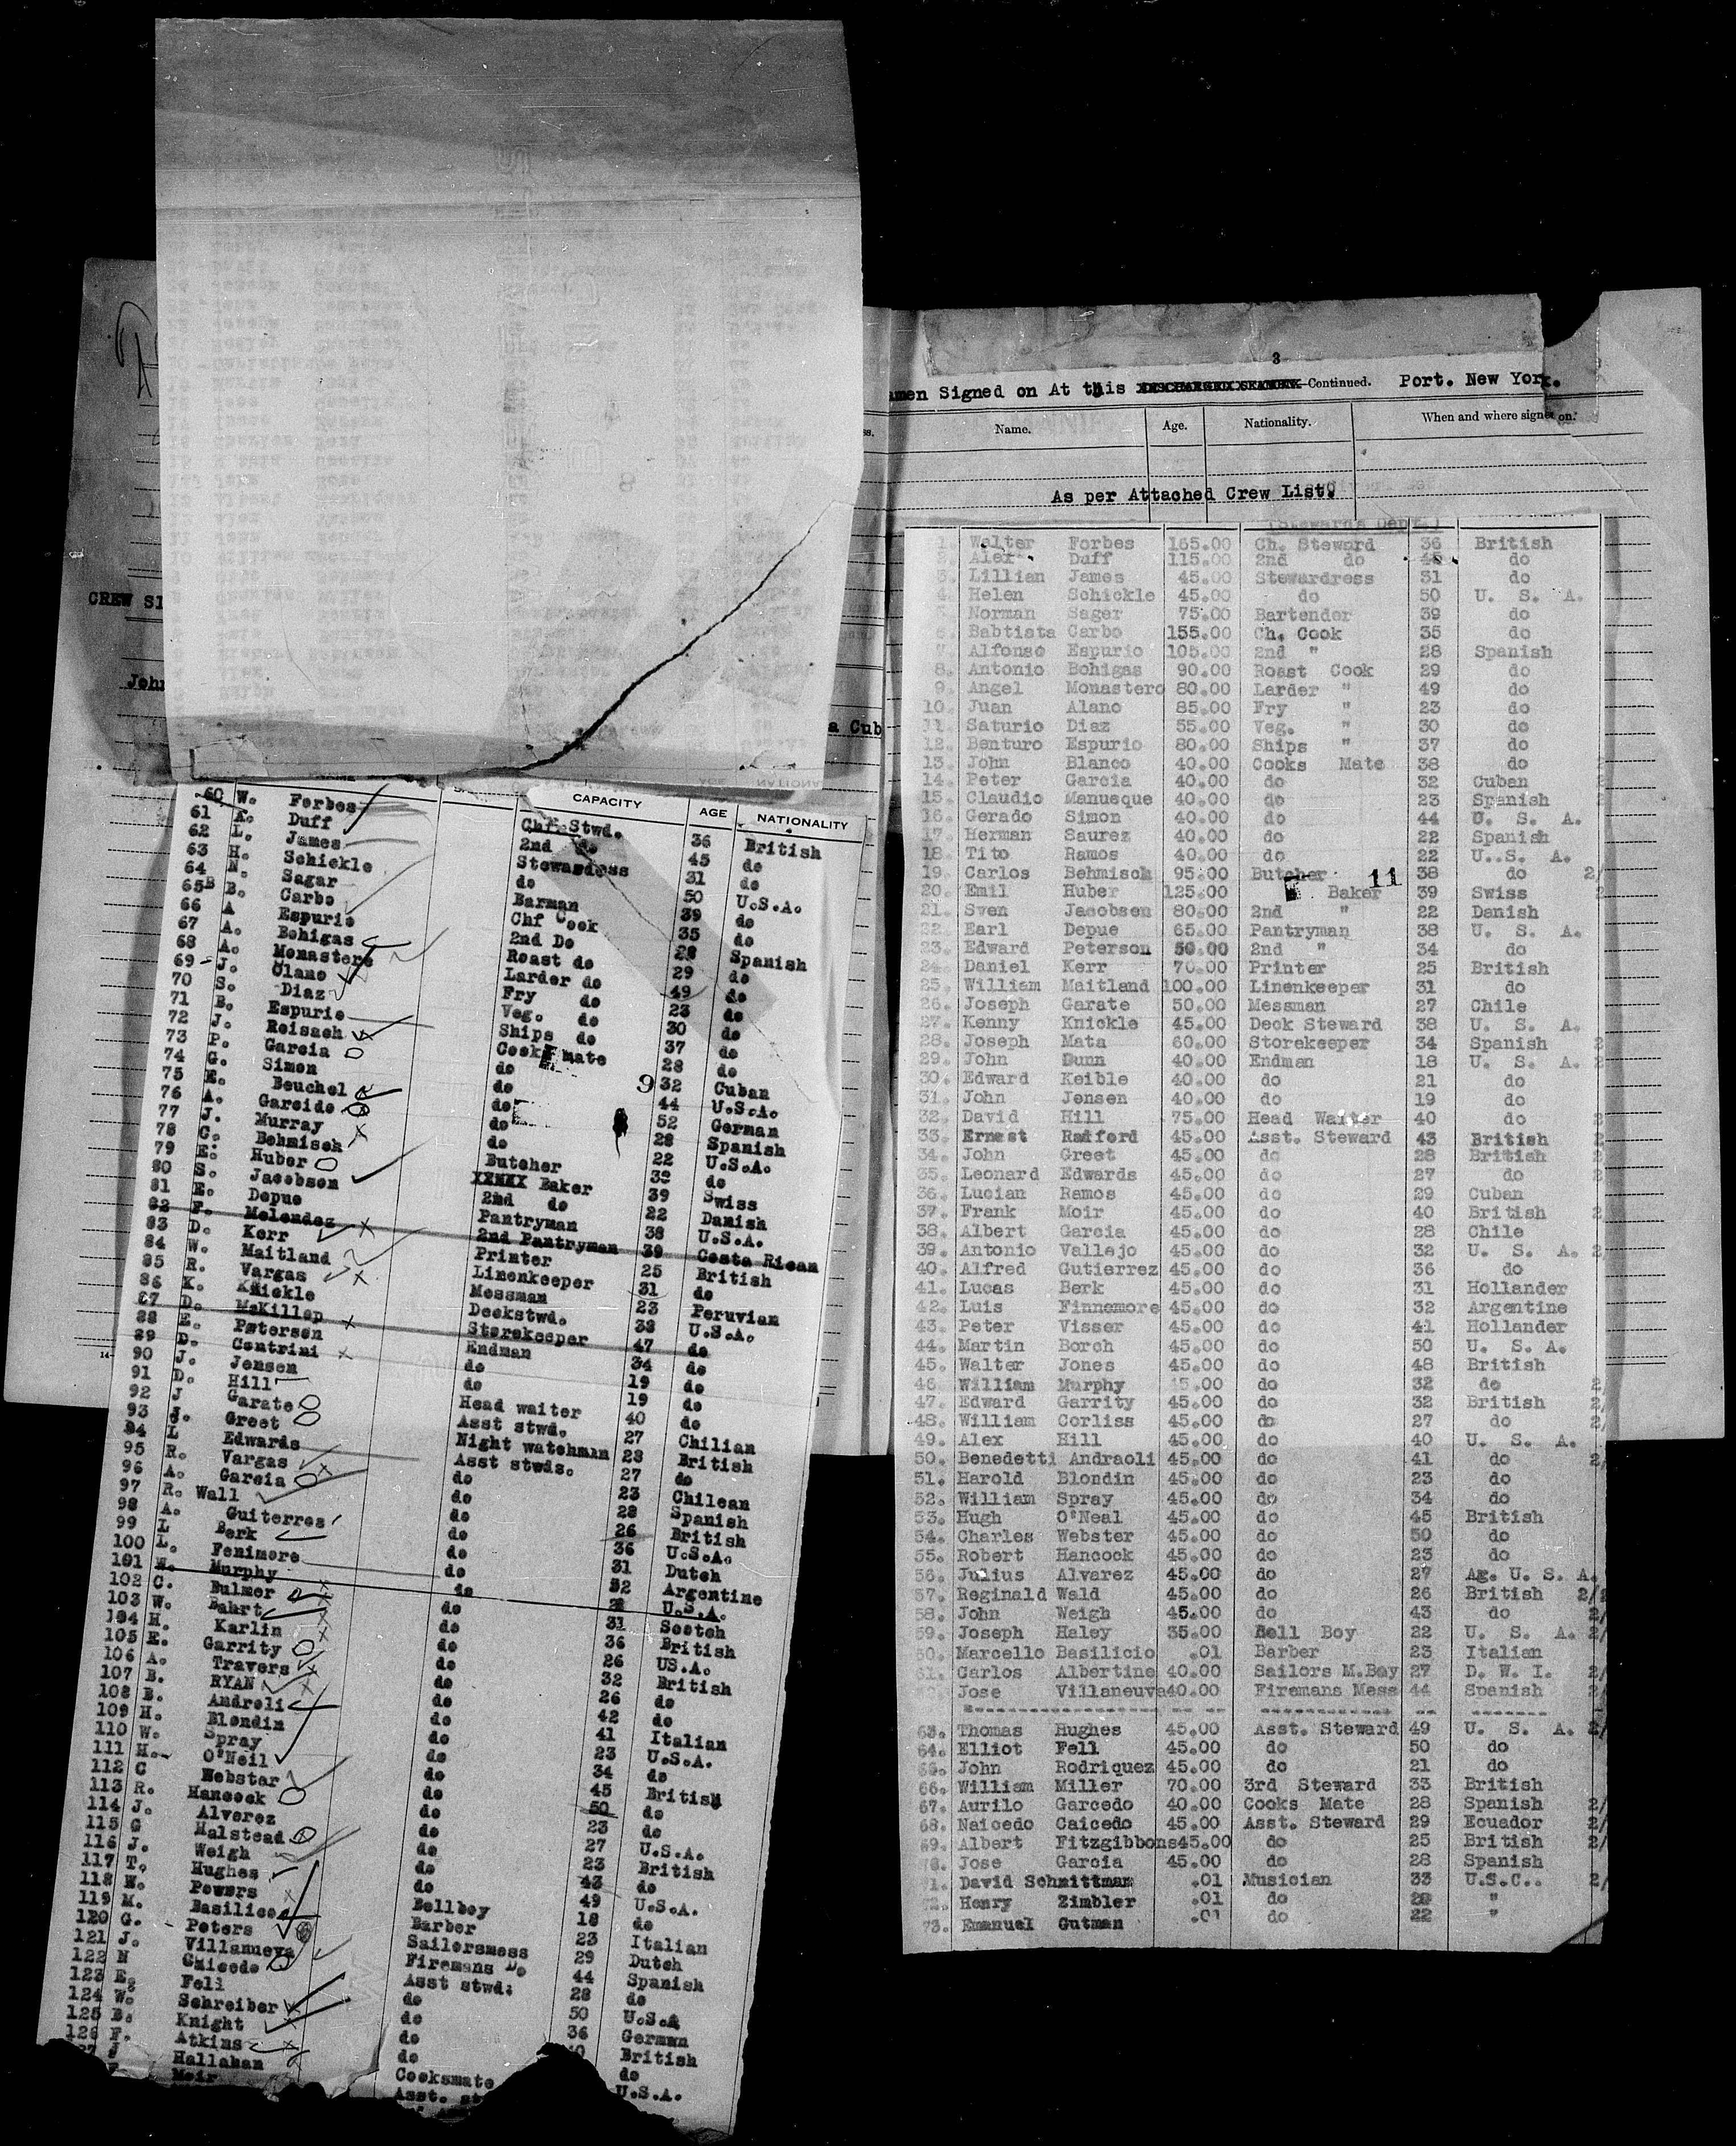 CREW SI
John
a Cub
CAPACITY AGE NATIONALITY
60 W. Forbes Chf Stwd. 36 British
61 A. Duff 2nd do 45 do
62 L. James Stewardess 31 do
63 H. Schickle do 50 U.S.A.
64 N. Sagar Barman 39 do
65B B. Carbo Chf Cook 35 do
66 A Espurio 2nd Do 28 Spanish
67 A. Bohigas Roast do 29 do
68 A. Monastero Larder do 49 do
69 J. Olano Fry do 23 do
70 S. Diaz Veg. do 30 do
71 B. Espurio Ships do 37 do
72 J. Reisach Cook mate 28 do
73 P. Garcia do 32 Cuban
9
74 G. Simon do 44 U.S.A.
75 E. Beuchel do 52 German
76 A. Garcido do 28 Spanish
77 J. Murray do 22 U.S.A.
78 C. Behmisch Butcher 38 do
79 E. Huber XXXXX Baker 39 Swiss
80 S. Jacobsen 2nd do 22 Danish
81 E. Depue Pantryman 38 U.S.A.
82 F. Melendez 2nd Pantryman 39 Costa Rican
83 D. Kerr Printer 25 British
84 W. Maitland Linenkeeper 31 do
85 R. Vargas Messman 23 Peruvian
86 K. Knickle Deckstwd. 38 U.S.A.
87 D. McKillop Storekeeper 47 do
88 E. Petersen Endman 34 do
89 D. Contrini do 19 do
90 J. Jensen do 19 do
91 D. Hill Head waiter 40 do
92 J Garate Asst stwd. 27 Chilian
93 J. Greet Night watchman 28 British
94 L Edwards Asst stwds. 27 do
95 R. Vargas do 23 Chilean
96 A. Garcia do 28 Spanish
97 R. Wall do 26 British
98 A. Guiterres do 36 U.S.A.
99 L Berk do 31 Dutch
100 L. Fenimore do 32 Argentine
101 W. Murphy do U.S.A.
102 C. Bulmer do 31 Scotch
103 W. Bahrt do 36 British
104 H. Karlin do 26 US.A.
105 E. Garrity do 32 British
106 A. Travers do 26 do
107 B. RYAN do 42 do
108 B. Andreli do 41 Italian
109 H. Blondin do 23 U.S.A.
110 W. Spray do 34 do
111 H. O'Neil do 45 British
112 C Webstar do 50 do
113 R. Hancock do 23 do
114 J. Alverez do 27 U.S.A.
115 G Halstead do 23 British
116 J. Weigh do 43 do
117 T. Hughes do 49 U.S.A.
118 W. Powers Bellboy 18 do
119 M. Basilico Barber 23 Italian
120 G. Peters Sailorsmess 29 Dutch
121 J. Villanueva Firemans Do 44 Spanish
122 N Caicedo Asst stwd. 28 do
123 E. Fell do 50 U.S.A
124 W. Schreiber do 36 German
125 B. Knight do British
126 F. Atkins do do
J Hallahan Cooksmate U.S.A.
Moir Asst. st
3
amen Signed on At this Continued. Port. New York.
Name. Age. Nationality. When and where signed on.
As per Attached Crew List.
(Stewards Dept.)
1. Walter Forbes 165.00 Ch. Steward 36 British
2. Alex Duff 115.00 2nd do 45 do
3. Lillian James 45.00 Stewardess 31 do
4. Helen Schickle 45.00 do 50 U. S. A.
5. Norman Sager 75.00 Bartender 39 do
6. Babtista Carbo 155.00 Ch. Cook 35 do
7. Alfonso Espurio 105.00 2nd " 28 Spanish
8. Antonio Bohigas 90.00 Roast Cook 29 do
9. Angel Monastero 80.00 Larder " 49 do
10. Juan Alano 85.00 Fry " 23 do
11. Saturio Diaz 55.00 Veg. " 30 do
12. Benturo Espurio 80.00 Ships " 37 do
13. John Blanco 40.00 Cooks Mate 38 do
14. Peter Garcia 40.00 do 32 Cuban
15. Claudio Manueque 40.00 do 23 Spanish
16. Gerado Simon 40.00 do 44 U. S. A.
17. Herman Saurez 40.00 do 22 Spanish
18. Tito Ramos 40.00 do 22 U..S. A.
19. Carlos Behmisch 95.00 Butcher 11 38 do 2/
20. Emil Huber 125.00 Baker 39 Swiss 2
21. Sven Jacobsen 80.00 2nd " 22 Danish
22. Earl Depue 65.00 Pantryman 38 U. S. A.
23. Edward Peterson 50.00 2nd " 34 do
24. Daniel Kerr 70.00 Printer 25 British
25. William Maitland 100.00 Linenkeeper 31 do
26. Joseph Garate 50.00 Messman 27 Chile
27. Kenny Knickle 45.00 Deck Steward 38 U. S. A.
28. Joseph Mata 60.00 Storekeeper 34 Spanish 2
29. John Dunn 40.00 Endman 18 U. S. A. 2
30. Edward Keible 40.00 do 21 do
31. John Jensen 40.00 do 19 do
32. David Hill 75.00 Head Waiter 40 do 2
33. Ernest Radford 45.00 Asst. Steward 43 British 2
34. John Greet 45.00 do 28 British 2
35. Leonard Edwards 45.00 do 27 do 2
36. Lucian Ramos 45.00 do 29 Cuban
37. Frank Moir 45.00 do 40 British 2
38. Albert Garcia 45.00 do 28 Chile
39. Antonio Vallejo 45.00 do 32 U. S. A. 2
40. Alfred Gutierrez 45.00 do 36 do
41. Lucas Berk 45.00 do 31 Hollander
42. Luis Finnemore 45.00 do 32 Argentine
43. Peter Visser 45.00 do 41 Hollander
44. Martin Borch 45.00 do 50 U. S. A.
45. Walter Jones 45.00 do 48 British
46. William Murphy 45.00 do 32 do 2
47. Edward Garrity 45.00 do 32 British 2/
48. William Corliss 45.00 do 27 do 2/
49. Alex Hill 45.00 do 40 U. S. A.
50. Benedetti Andraoli 45.00 do 41 do 2/
51. Harold Blondin 45.00 do 23 do
52. William Spray 45.00 do 34 do
53. Hugh O'Neal 45.00 do 45 British
54. Charles Webster 45.00 do 50 do
55. Robert Hancock 45.00 do 23 do
56. Julius Alvarez 45.00 do 27 Ag. U. S. A.
57. Reginald Wald 45.00 do 26 British 2/
58. John Weigh 45.00 do 43 do 2/
59. Joseph Haley 35.00 Bell Boy 22 U. S. A. 2/
60. Marcello Basilicio .01 Barber 23 Italian
61. Carlos Albertine 40.00 Sailors M.Boy 27 D. W. I. 2/
Jose Villaneuva 40.00 Firemans Mess 44 Spanish 2/
63. Thomas Hughes 45.00 Asst. Steward 49 U. S. A. 2/
64. Elliot Fell 45.00 do 50 do
65. John Rodriquez 45.00 do 21 do
66. William Miller 70.00 3rd Steward 33 British
67. Aurilo Garcedo 40.00 Cooks Mate 28 Spanish 2/
68. Naicedo Caicedo 45.00 Asst. Steward 29 Ecuador 2/
69. Albert Fitzgibbons 45.00 do 25 British 2/
70. Jose Garcia 45.00 do 28 Spanish
71. David Schmittman .01 Musician 33 U.S.C.. 2/
72. Henry Zimbler .01 do 20 "
73. Emanuel Gutman .01 do 22 "